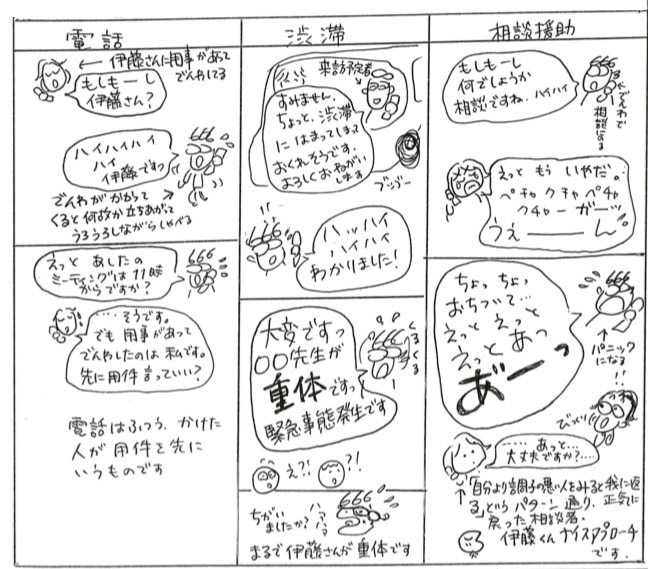 電話
← 伊藤さんに用事があって
でんわしてる
もしもーし
伊藤さん?
666
ハイハイハイ
ハイ
伊藤ですっ
でんわがかかって →
くると何故か立ちあがって
うろうろしながらしゃべる
えっと あしたの
ミーティングは11時
からですか?
666
……そうです。
でも 用事があって
でんわしたのは 私です。
先に用件言っていい?
電話はふつう、かけた
人が 用件を先に
いうものです
渋滞
来訪予定者
すみません、
ちょっと、渋滞
にはまってしまって
おくれそうです、
よろしくおねがい
します
ブッブー
666
ハッハイ
ハイハイ
わかりました!
大変ですっ
〇〇先生が
重体ですっ
緊急事態発生です
666
くるくる
え?!
?!
ちがい
ましたか?
ハァ
ハァ
666
まるで伊藤さんが重体です
相談援助
もしもーし
何でしょうか
相談ですね、ハイハイ
666
↑でんわで
相談にのる
えっと もう いやだ。
ペチャ クチャ ペチャ
クチャー ガーッ
うえーーーん
ちょっ ちょっ
おちついて…
えっと えっと
えっと あっ
あ゛ーーっ
666
↑
パニック
になる
!!
びっくり
……あっと…
大丈夫ですか?…
↑「自分より調子の悪い人をみると我に返
る」というパターン通り、正気に
戻った相談者。
伊藤くんナイスアプローチ
です.